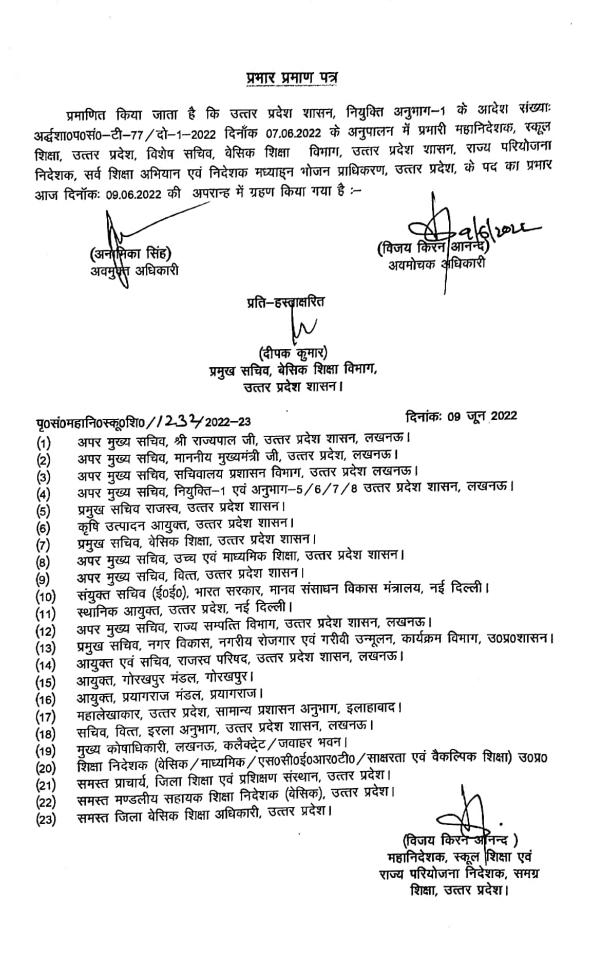 प्रभार प्रमाण पत्र
प्रमाणित किया जाता है कि उत्तर प्रदेश शासन, नियुक्ति अनुभाग-1 के आदेश संख्याः
अर्द्धशा०प०सं०-टी-77/दो-1-2022 दिनाँक 07.06.2022 के अनुपालन में प्रभारी महानिदेशक, स्कूल
शिक्षा, उत्तर प्रदेश, विशेष सचिव, बेसिक शिक्षा विभाग, उत्तर प्रदेश शासन, राज्य परियोजना
निदेशक, सर्व शिक्षा अभियान एवं निदेशक मध्याह्न भोजन प्राधिकरण, उत्तर प्रदेश, के पद का प्रभार
आज दिनाँकः 09.06.2022 की अपरान्ह में ग्रहण किया गया है :-
9/6/2022
(अनामिका सिंह) (विजय किरन आनन्द)
अवमुक्त अधिकारी अवमोचक अधिकारी
प्रति-हस्ताक्षरित
(दीपक कुमार)
प्रमुख सचिव, बेसिक शिक्षा विभाग,
उत्तर प्रदेश शासन।
पृ०सं०महानि०स्कू०शि०/1232/2022-23 दिनांकः 09 जून 2022
(1) अपर मुख्य सचिव, श्री राज्यपाल जी, उत्तर प्रदेश शासन, लखनऊ।
(2) अपर मुख्य सचिव, माननीय मुख्यमंत्री जी, उत्तर प्रदेश, लखनऊ।
(3) अपर मुख्य सचिव, सचिवालय प्रशासन विभाग, उत्तर प्रदेश लखनऊ।
(4) अपर मुख्य सचिव, नियुक्ति-1 एवं अनुभाग-5/6/7/8 उत्तर प्रदेश शासन, लखनऊ।
(5) प्रमुख सचिव राजस्व, उत्तर प्रदेश शासन।
(6) कृषि उत्पादन आयुक्त, उत्तर प्रदेश शासन।
(7) प्रमुख सचिव, बेसिक शिक्षा, उत्तर प्रदेश शासन।
(8) अपर मुख्य सचिव, उच्च एवं माध्यमिक शिक्षा, उत्तर प्रदेश शासन।
(9) अपर मुख्य सचिव, वित्त, उत्तर प्रदेश शासन।
(10) संयुक्त सचिव (ई०ई०), भारत सरकार, मानव संसाधन विकास मंत्रालय, नई दिल्ली।
(11) स्थानिक आयुक्त, उत्तर प्रदेश, नई दिल्ली।
(12) अपर मुख्य सचिव, राज्य सम्पत्ति विभाग, उत्तर प्रदेश शासन, लखनऊ।
(13) प्रमुख सचिव, नगर विकास, नगरीय रोजगार एवं गरीवी उन्मूलन, कार्यक्रम विभाग, उ०प्र०शासन।
(14) आयुक्त एवं सचिव, राजस्व परिषद, उत्तर प्रदेश शासन, लखनऊ।
(15) आयुक्त, गोरखपुर मंडल, गोरखपुर।
(16) आयुक्त, प्रयागराज मंडल, प्रयागराज।
(17) महालेखाकार, उत्तर प्रदेश, सामान्य प्रशासन अनुभाग, इलाहाबाद।
(18) सचिव, वित्त, इरला अनुभाग, उत्तर प्रदेश शासन, लखनऊ।
(19) मुख्य कोषाधिकारी, लखनऊ, कलैक्ट्रेट/जवाहर भवन।
(20) शिक्षा निदेशक (बेसिक/माध्यमिक/एस०सी०ई०आर०टी०/साक्षरता एवं वैकल्पिक शिक्षा) उ०प्र०
(21) समस्त प्राचार्य, जिला शिक्षा एवं प्रशिक्षण संस्थान, उत्तर प्रदेश।
(22) समस्त मण्डलीय सहायक शिक्षा निदेशक (बेसिक), उत्तर प्रदेश।
(23) समस्त जिला बेसिक शिक्षा अधिकारी, उत्तर प्रदेश।
(विजय किरन आनन्द )
महानिदेशक, स्कूल शिक्षा एवं
राज्य परियोजना निदेशक, समग्र
शिक्षा, उत्तर प्रदेश।